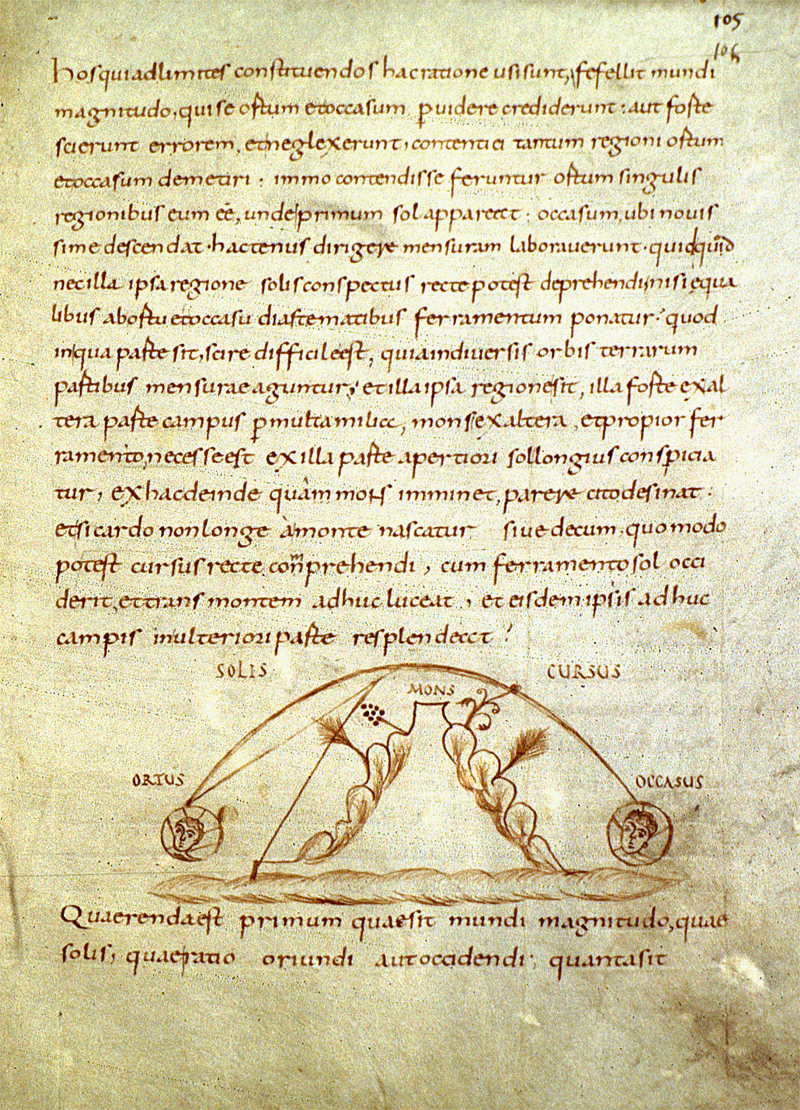 105
106
hos qui ad limites constituendos hac ratione usi sunt, fefellit mundi
magnitudo, qui se ortum et occasum puidere crediderunt. aut forte
scierunt errorem, et neglexerunt, contenti ei tantum regioni ortum
et occasum demetiri. immo contendisse feruntur ortum singulis
regionibus eum eē, unde primum sol apparect. occasum, ubi nouis
sime descendat. hactenus dirigere mensuram laborauerunt. quid quod
nec illa ipsa regione solis conspectus recte potest deprehendi nisi equa
libus ab ortu et occasu diastematibus ferramentum ponatur. quod
in qua parte sit, scire difficile est, quia in diuersis orbis terrarum
partibus mensurae aguntur, et illa ipsa regione sit, illa forte ex al
tera parte campus p multa milicc, mons ex altera, et propior fer
ramento, necesse est ex illa parte apertiori sol longius conspicia
tur, ex hac deinde quam mons imminet, parere cito desinat.
et si cardo non longe a monte nascatur siue decum. quomodo
potest cursus recte comprehendi, cum ferramento sol occi
derit, et trans montem adhuc luceat, et eisdem ipsis adhuc
campis in ulteriori parte resplendecct?
SOLIS CURSUS
MONS
ORTUS OCCASUS
Quaerenda est primum quae sit mundi magnitudo, quae
solis, quae ratio oriundi aut occidendi, quanta sit